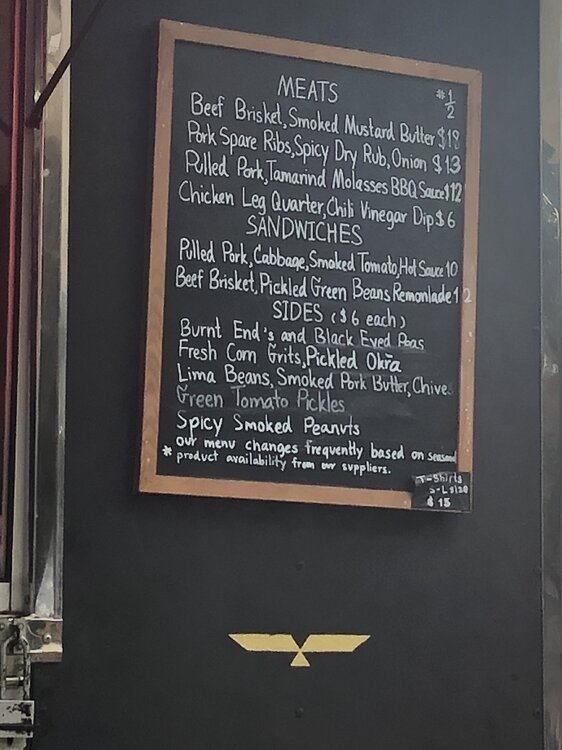 MEATS
#1/2
Beef Brisket, Smoked Mustard Butter $18
Pork Spare Ribs, Spicy Dry Rub, Onion $13
Pulled Pork, Tamarind Molasses BBQ Sauce $12
Chicken Leg Quarter, Chili Vinegar Dip $6
SANDWICHES
Pulled Pork, Cabbage, Smoked Tomato, Hot Sauce 10
Beef Brisket, Pickled Green Beans Remonlade 12
SIDES ($6 each)
Burnt End's and Black Eyed Peas
Fresh Corn Grits, Pickled Okra
Lima Beans, Smoked Pork Butter, Chive
Green Tomato Pickles
Spicy Smoked Peanuts
* our menu changes frequently based on season
product availability from our suppliers.
T-Shirts
S-L size
$15